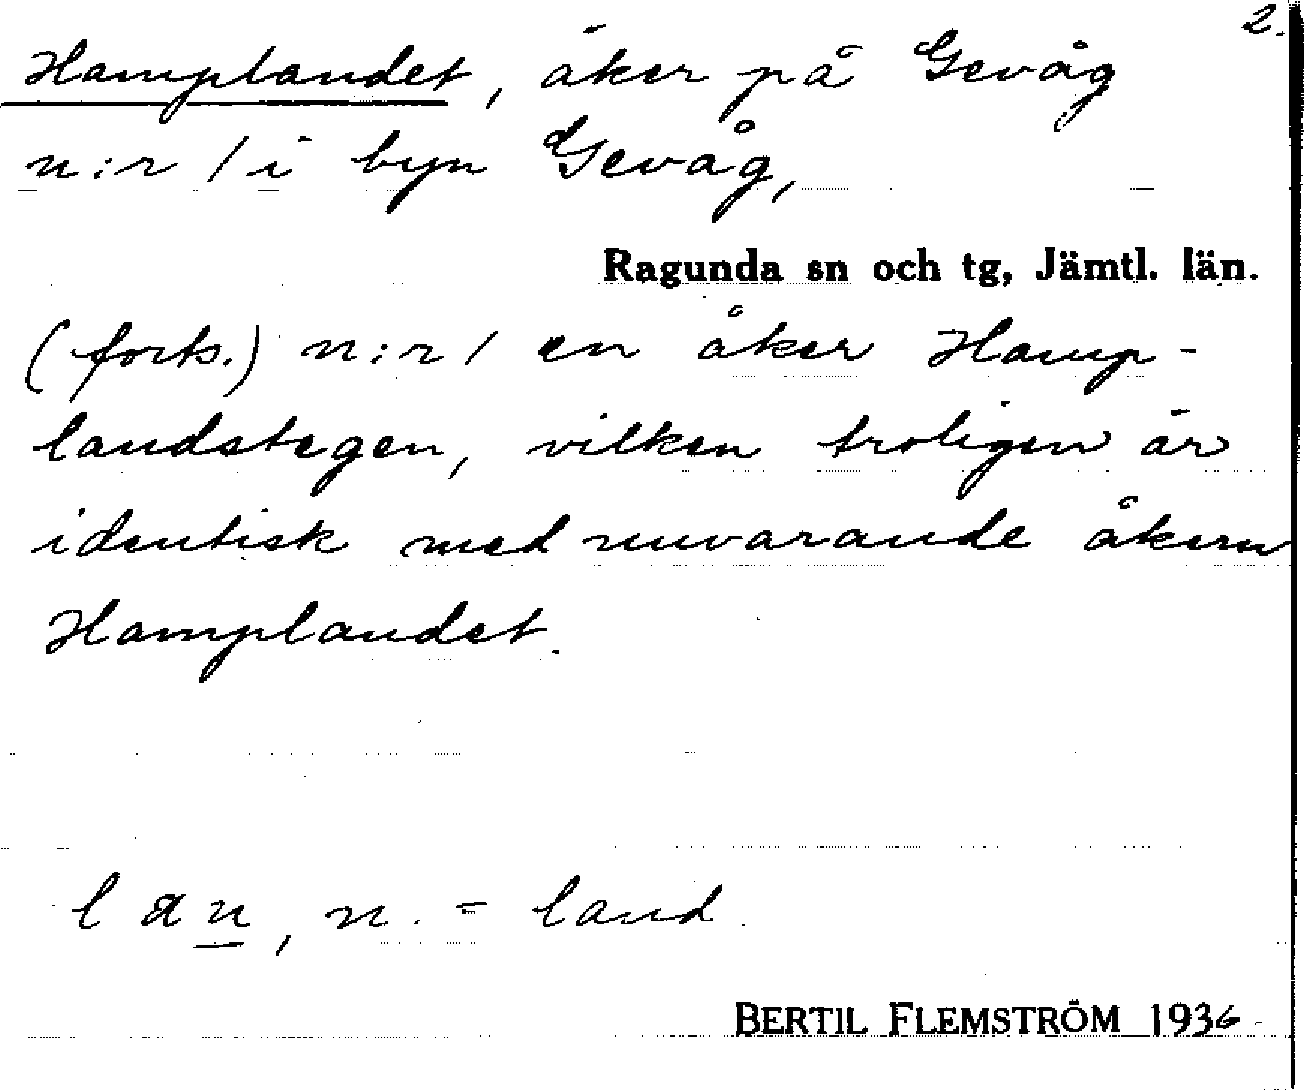 2.
Hamplandet, åker på Gevåg
n:r 1 i byn Gevåg,
Ragunda sn och tg, Jämtl. län.
(forts.) n:r 1 en åker Hamp-
landstegen, vilken troligen är
identisk med nuvarande åkern
Hamplandet.
lan, n. = land.
BERTIL FLEMSTRÖM 1936